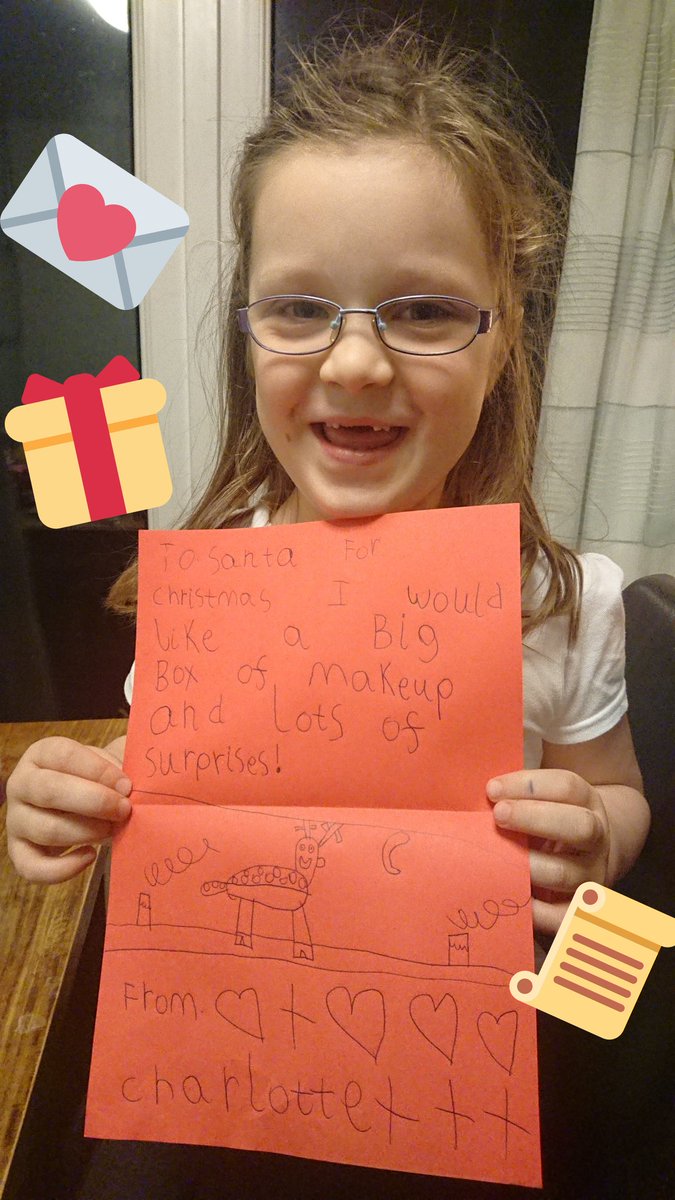 To santa For
christmas I would
like a Big
Box of makeup
and lots of
surprises!
From
charlotte